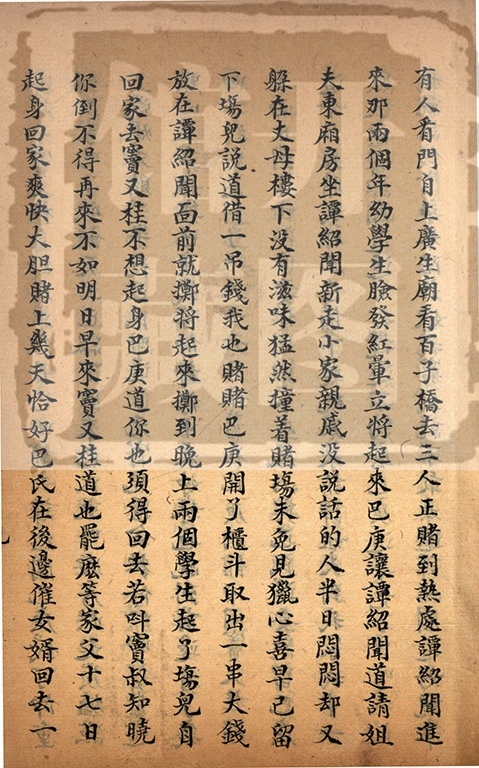 有人看門自上廣生廟看百子橋去三人正賭到熱處譚紹聞進
來那兩個年幼學生臉發紅暈立將起來巴庚讓譚紹聞道請姐
夫東廂房坐譚紹聞新走小家親戚没說話的人半日悶悶却又
躲在丈母樓下没有滋味猛然撞着賭塲未免見獵心喜早已留
下塲兒說道借一吊錢我也賭賭巴庚開了櫃斗取出一串大錢
放在譚紹聞面前就擲將起來擲到晚上兩個學生起了塲兒自
回家去竇又桂不想起身巴庚道你也須得回去若呌竇叔知曉
你倒不得再來不如明日早來竇又桂道也罷麽等家父十七日
起身回家爽快大胆賭上幾天恰好巴氏在後邊催女婿回去一